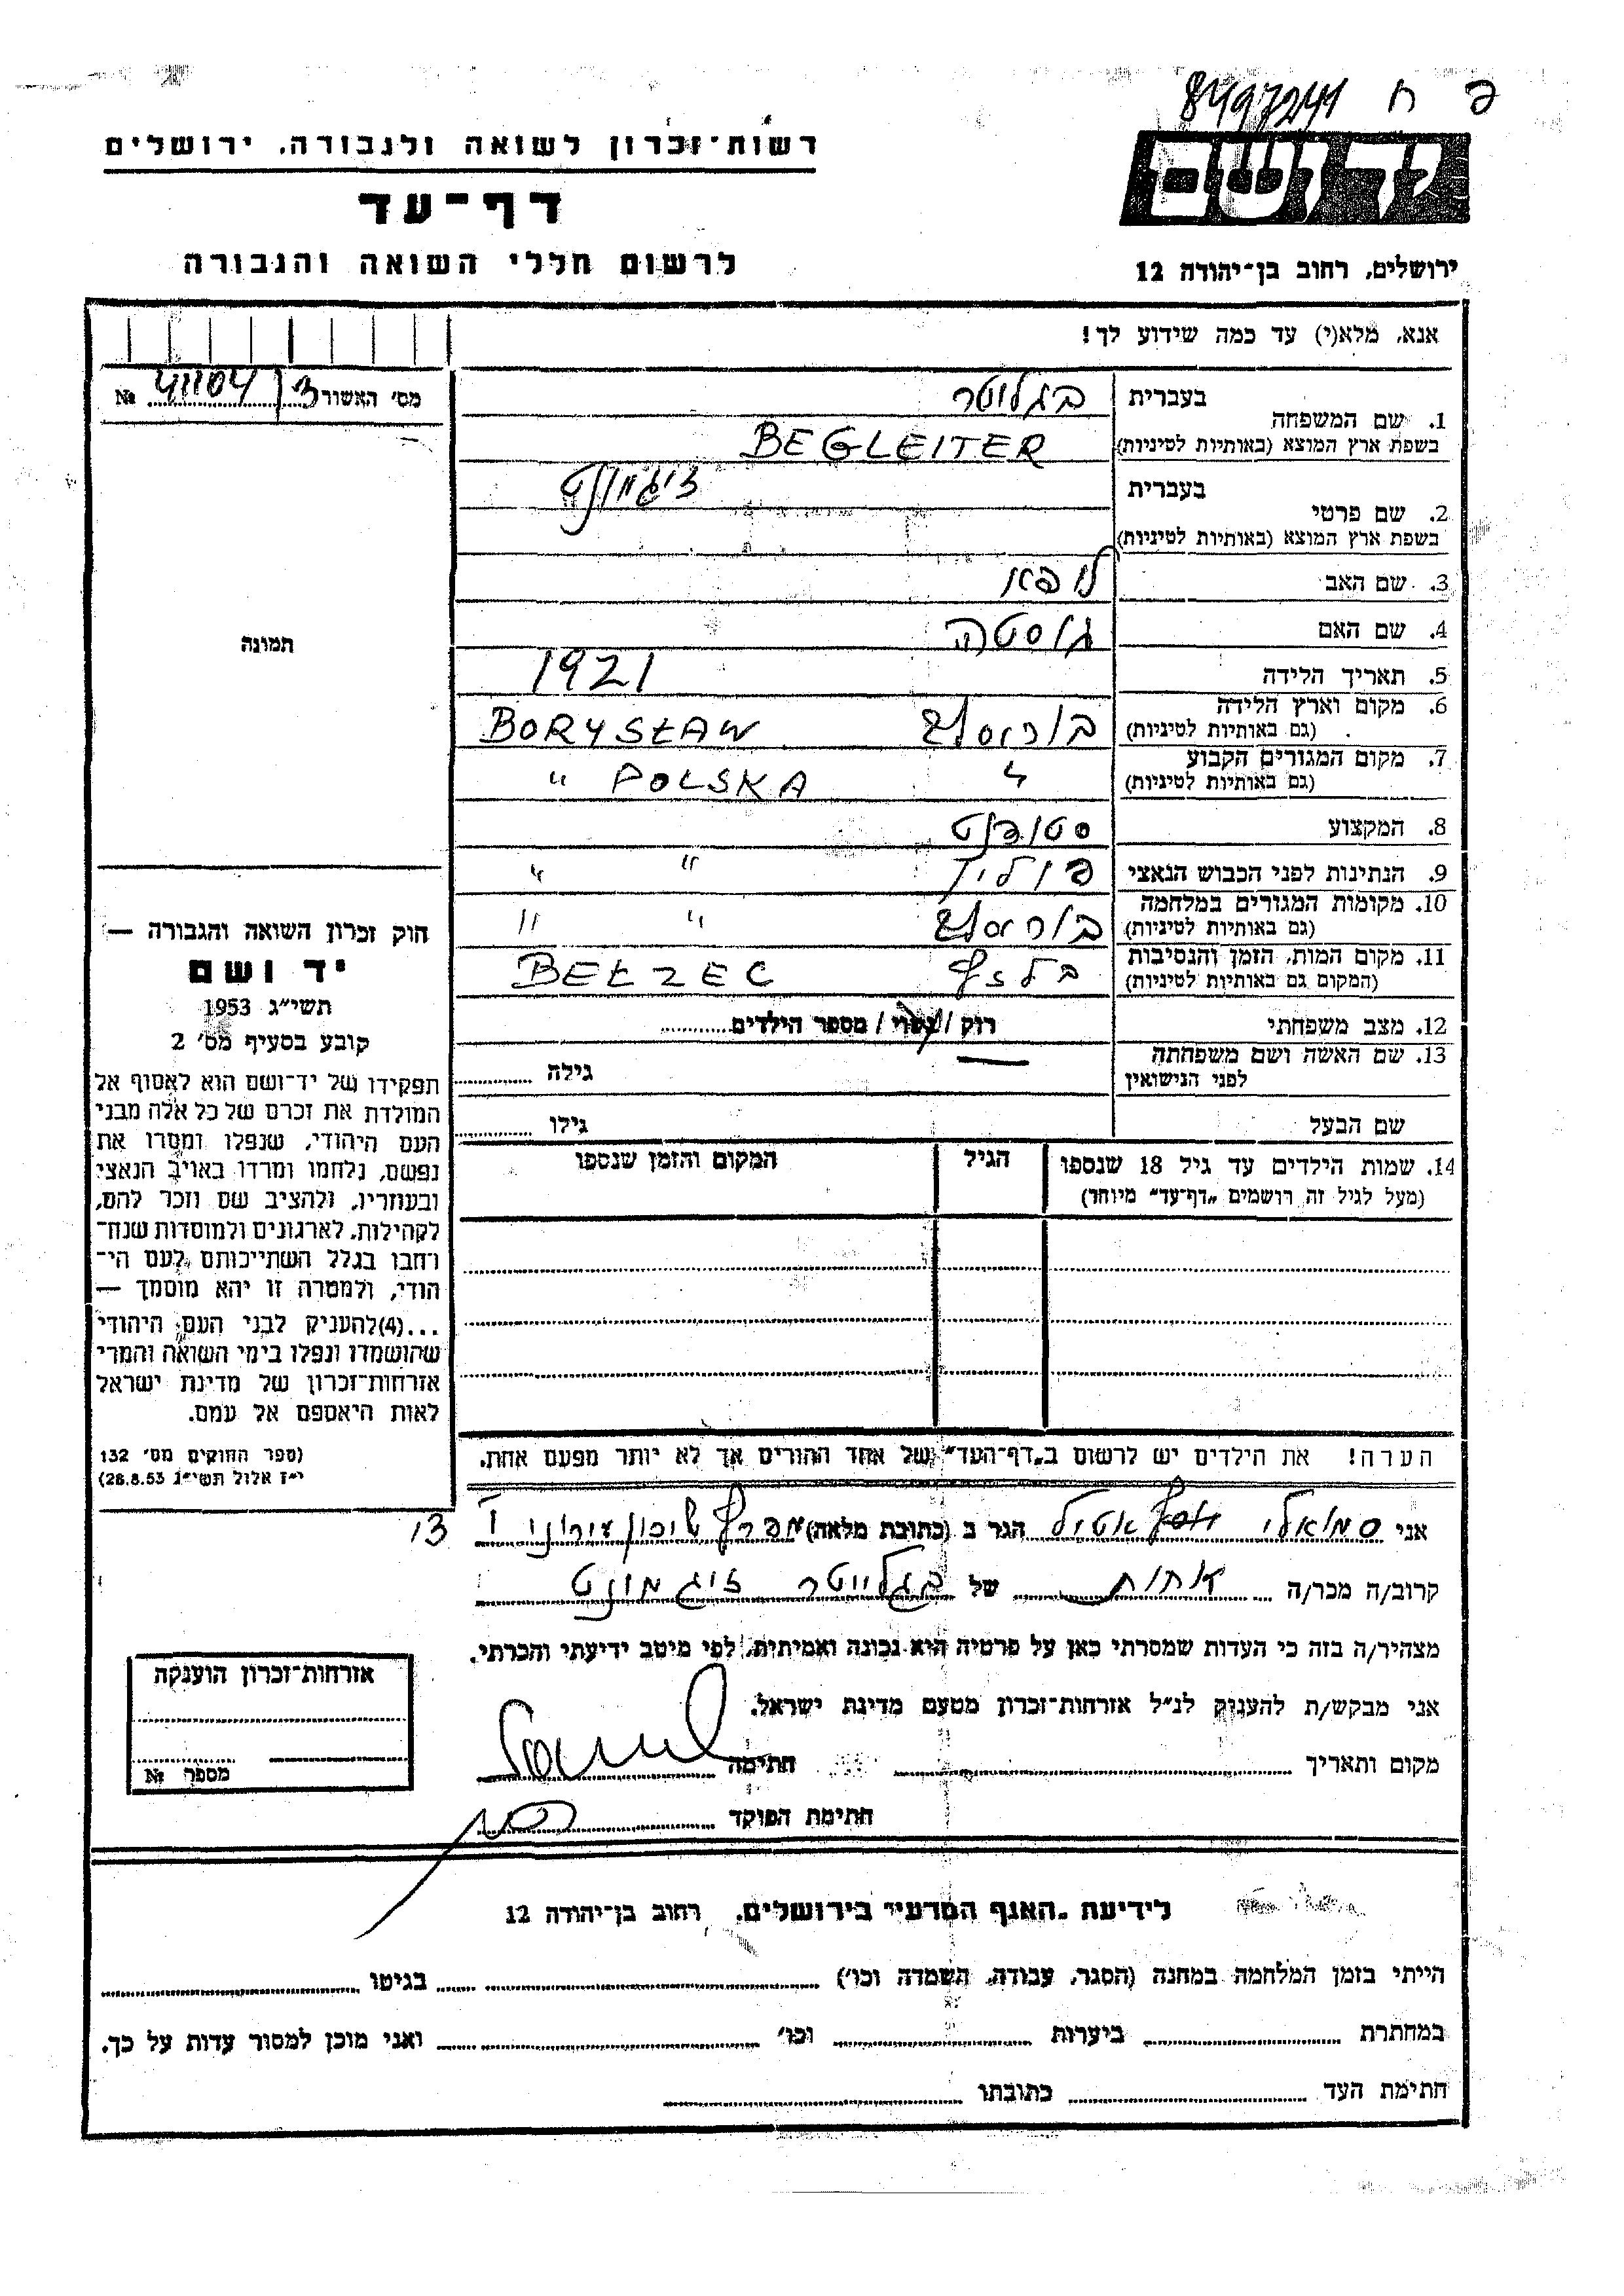 8497244 ח פ
יד ושם
ירושלים, רחוב בן־יהודה 12
רשות־זכרון לשואה ולגבורה, ירושלים
דף־עד
לרשום חללי השואה והגבורה
אנא, מלא(י) עד כמה שידוע לך!
מס' האשור 3 41104 №
תמונה
חוק זכרון השואה והגבורה —
יד ושם
תשי״ג 1953
קובע בסעיף מס' 2
תפקידו של יד־ושם הוא לאסוף אל
המולדת את זכרם של כל אלה מבני
העם היהודי, שנפלו ומסרו את
נפשם, נלחמו ומרדו באויב הנאצי
ובעוזריו, ולהציב שם וזכר להם,
לקהילות, לארגונים ולמוסדות שנח־
רחבו בגלל השתייכותם לעם הי־
הודי, ולמטרה זו יהא מוסמך —
...(4)להעניק לבני העם היהודי
שהושמדו ונפלו בימי השואה והמרי
אזרחות־זכרון של מדינת ישראל
לאות היאספם אל עמם.
(ספר החוקים מס' 132
י״ז אלול תשי״ג 28.8.53)
1. שם המשפחה
בעברית בגלייטר
בשפת ארץ המוצא (באותיות לטיניות) BEGLEITER
2. שם פרטי
בעברית זיגמונט
בשפת ארץ המוצא (באותיות לטיניות)
3. שם האב
4. שם האם גוסטה
5. תאריך הלידה 1921
6. מקום וארץ הלידה
(גם באותיות לטיניות) בוריסלב BORYSŁAW
7. מקום המגורים הקבוע
(גם באותיות לטיניות) " POLSKA "
8. המקצוע סטודנט
9. הנתינות לפני הכבוש הנאצי פולין " "
10. מקומות המגורים במלחמה
(גם באותיות לטיניות) בוריסלב " "
11. מקום המות, הזמן והנסיבות
(המקום גם באותיות לטיניות) בלזץ BEŁZEC
12. מצב משפחתי רווק / נשוי / מספר הילדים
13. שם האשה ושם משפחתה
לפני הנישואין — גילה
שם הבעל גילו
14. שמות הילדים עד גיל 18 שנספו
(מעל לגיל זה רושמים „דף־עד״ מיוחד)
הגיל
המקום והזמן שנספו
הערה! את הילדים יש לרשום ב„דף־העד״ של אחד ההורים אך לא יותר מפעם אחת.
אני סמואלי אטיל הגר ב (כתובת מלאה) מפרץ שיכון עירוני 13
קרוב/ה מכר/ה אחות של בגלייטר זיגמונט
מצהיר/ה בזה כי העדות שמסרתי כאן על פרטיה היא נכונה ואמיתית, לפי מיטב ידיעתי והכרתי.
אני מבקש/ת להעניק לנ״ל אזרחות־זכרון מטעם מדינת ישראל.
מקום ותאריך חתימה
חתימת הפוקד
אזרחות־זכרון הוענקה
מספר №
לידיעת „האגף המדעי״ בירושלים, רחוב בן־יהודה 12
הייתי בזמן המלחמה במחנה (הסגר, עבודה, השמדה וכו') בגיטו
במחתרת ביערות וכו' ואני מוכן למסור עדות על כך.
חתימת העד כתובתו